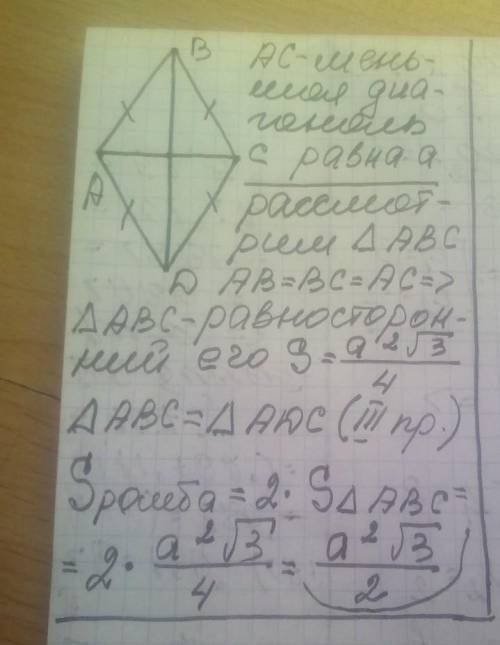 B
AC-мень-
шая диа-
гональ
C равна a
A
рассмот-
рим ΔABC
D AB=BC=AC=>
ΔABC-равносторон-
ний его S = a²√3/4
ΔABC=ΔADC (III пр.)
Sромба = 2· SΔABC=
= 2· a²√3/4 = a²√3/2